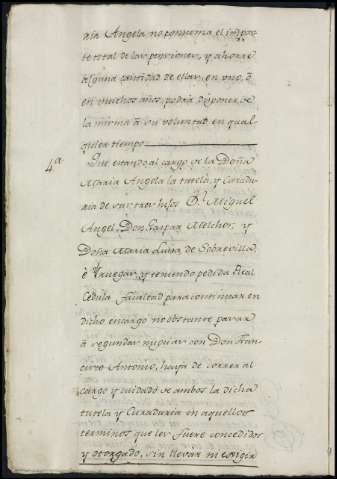 ria Angela no consuma el impor
te total de las pensiones, y ahorre
alguna cantidad de ellas, en uno, ô
en muchos años, podrà disponer de
la misma à su voluntad en qual
quier tiempo
4.ª Que estando al cargo de la Doña
Maria Angela la tutela, y Curadu
ria de sus tres hijos D.ⁿ Miguel
Angel, Don Gaspar Melchor, y
Doña Maria Luisa de Sobrevilla,
è y teniendo pedida Real
Cedula facultad para continuar en
dicho encargo no obstante pasar
à segundas nupcias con Don Fran
cisco Antonio, haya de correr al
cargo y cuidado de ambos la dicha
tutela y Curaduria en aquellos
terminos que les fuere concedidos
y otorgado, sin llevar ni exigir